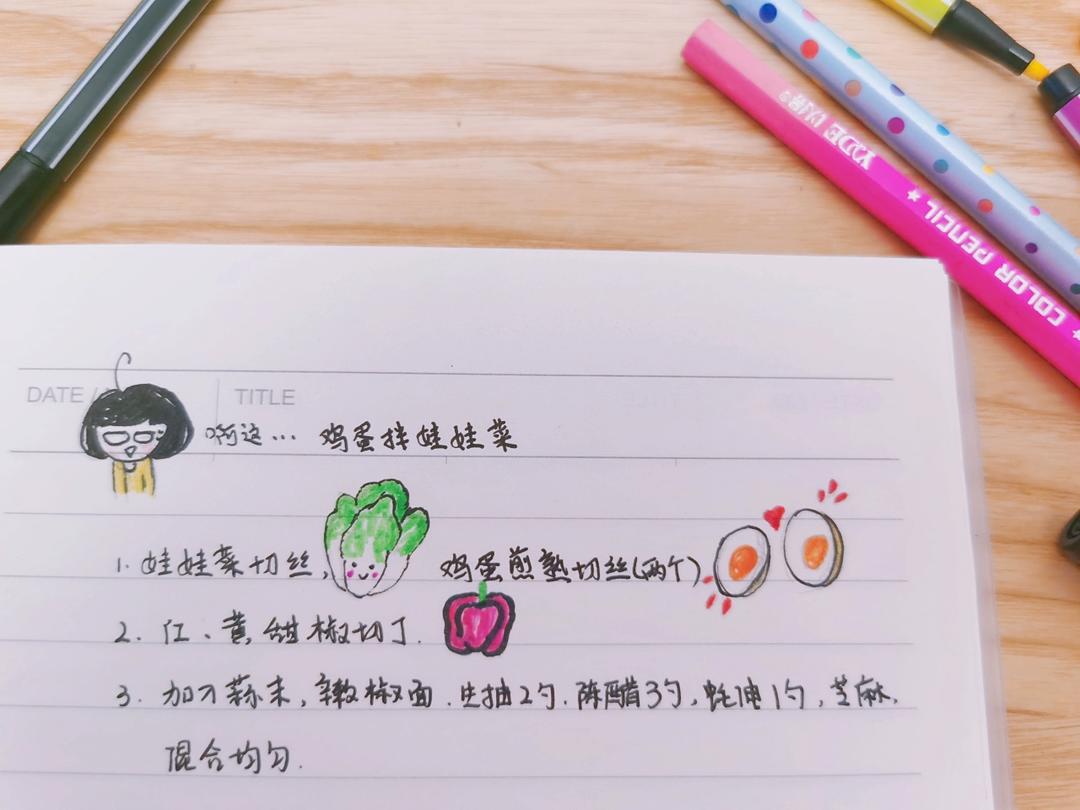 YIDE
COLOR PENCIL
DATE /
TITLE
啊这… 鸡蛋拌娃娃菜
1. 娃娃菜切丝, 鸡蛋煎熟切丝(两个)
2. 红、黄甜椒切丁.
3. 加入蒜末, 辣椒面. 生抽2勺. 陈醋3勺, 蚝油1勺, 芝麻,
混合均匀.